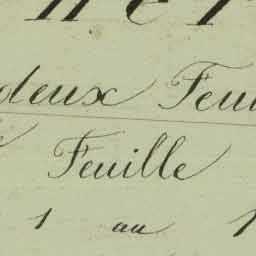 deux Feu
Feuille
1 au 1